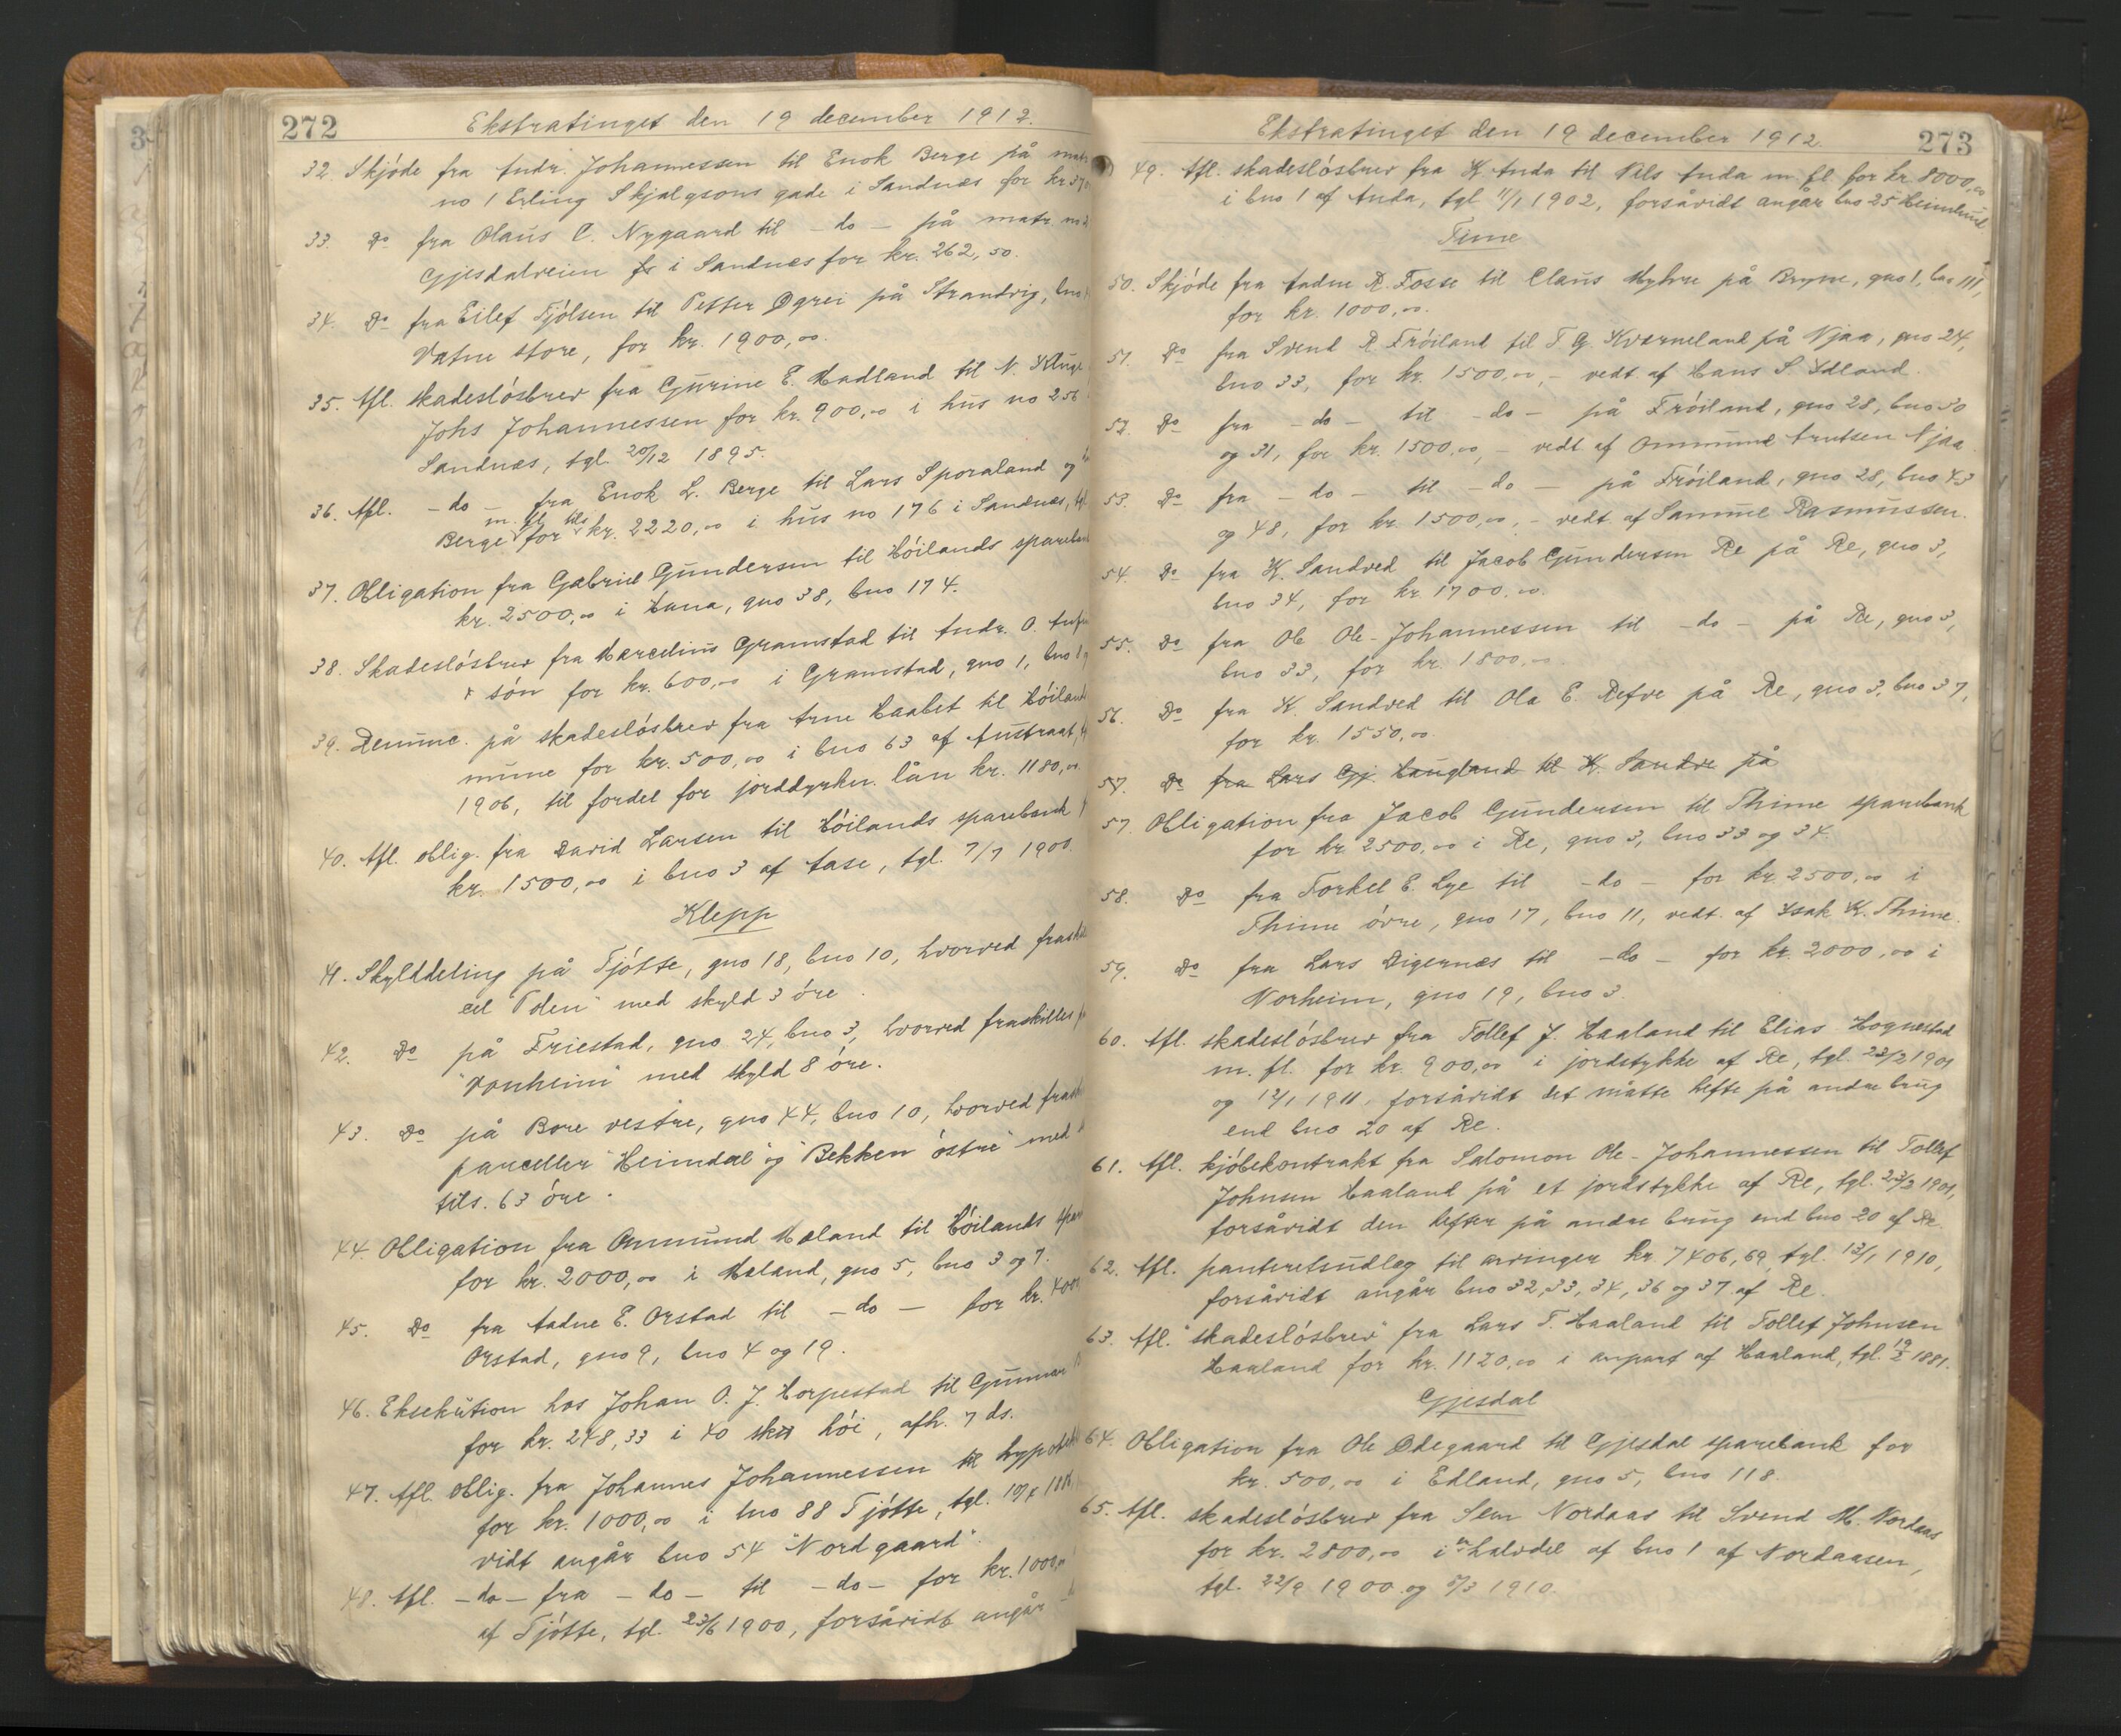 272
Ekstratinget den 19 december 1912.
32. Skjóde fra Andr. Johannessen til Enok Berge på matr.
no 1 Erling Skjalgsons gade i Sandnæs for kr
33. Do fra Olaus C. Nygaard til -do- på matr. no
Gjesdalveien i Sandnæs for kr. 262,50.
34. Do fra Eilef Tjólsen til Petter Øgrei på Strandvig, bno
Vatne store, for kr. 1900,00.
35. Afl. skadeslósbrev fra Gurine E. Hadland til N.
Johs Johannessen for kr. 900,00 i hus no 256
Sandnæs, tgl. 20/12 1895.
36. Afl. -do- fra Enok L. Berge til Lars Sporaland og
m. fl. tils
Berge for kr. 2220,00 i hus no 176 i Sandnæs,
37. Obligation fra Gabriel Gundersen til Hóilands spareban
kr. 2500,00 i Hana, gno 38, bno 174.
38. Skadeslósbrev fra Marcelius Gramstad til Andr. O.
són for kr. 600,00 i Gramstad, gno 1, bno
39. Renunc. på skadeslósbrev fra Arne Haabet til Hóiland
mune for kr. 500,00 i bno 63 af Austraat,
1906, til fordel for jorddyrkn. lån kr. 1180,00.
40. Afl. oblig. fra David Larsen til Hóilands sparebank
kr. 1500,00 i bno 3 af Aase, tgl. 7/7 1900.
Klepp
41. Skylddeling på Tjótte, gno 18, bno 10, hvorved fraskil
eel "Polen" med skyld 3 óre.
42. Do på Friestad, gno 24, bno 3, hvorved fraskilles
"Vonheim" med skyld 8 óre.
43. Do på Bore vestre, gno 44, bno 10, hvorved frask
parceller "Heimdal" og "Bekken óstre" med
tils. 63 óre.
44. Obligation fra Ommund Mæland til Hóilands spar
for kr. 2000,00 i Mæland, gno 5, bno 3 og 7.
45. Do fra Aadne E. Orstad til -do- for kr. 400
Orstad, gno 9, bno 4 og 19.
46. Eksekution hos Johan O. J. Horpestad til Gunnar
for kr. 248,33 i 40 hói, afh. 7 ds.
47. Afl. oblig. fra Johannes Johannessen til hypothek
for kr. 1000,00 i bno 88 Tjótte, tgl.
vidt angår bno 54 "Nordgaard".
48. Afl. -do- fra -do- til -do- for kr. 1000,00
af Tjótte, tgl. 23/6 1900, forsåvidt angår
Ekstratinget den 19 december 1912.
273
49. Afl. skadeslósbrev fra K. Anda til Nils Anda m. fl for kr. 8000,00
i bno 1 af Anda, tgl 11/1 1902, forsåvidt angår bno 25 Heimlund
Time
50. Skjóde fra Aadne R. Fosse til Claus Myhre på Bryne, gno 1, bno 111,
for kr. 1000,00.
51. Do fra Svend R Fróiland til T G. Kverneland på Njaa, gno 24,
bno 33, for kr. 1500,00, - vedt. af Hans S. Ydland.
52. Do fra -do- til -do- på Fróiland, gno 28, bno 30
og 31, for kr. 1500,00, - vedt af Ommund Knutsen Njaa
53. Do fra -do- til -do- på Fróiland, gno 28, bno 43
og 48, for kr. 1500,00, - vedt. af Samuel Rasmussen.
54. Do fra K. Sandved til Jacob Gundersen Re på Re, gno 3,
bno 34, for kr. 1700,00.
55. Do fra Ole Ole-Johannessen til -do- på Re, gno 3,
bno 33, for kr. 1800,00.
56. Do fra K. Sandved til Ola E. Refve på Re, gno 3, bno 37,
for kr. 1550,00.
57. Do fra Lars Gj. Haugland til K. Sandve på
57. Obligation fra Jacob Gundersen til Thime sparebank
for kr. 2500,00 i Re, gno 3, bno 33 og 34.
58. Do fra Torkel E. Lye til -do- for kr. 2500,00 i
Thime óvre, gno 17, bno 11, vedt. af Isak K. Thime.
59. Do fra Lars Digernæs til -do- for kr. 2000,00 i
Norheim, gno 19, bno 3.
60. Afl. skadeslósbrev fra Tollef J. Haaland til Elias Hognestad
m. fl. for kr. 900,00 i jordstykke af Re, tgl. 23/2 1901
og 12/1 1911, forsåvidt det måtte hefte på andre brug
end bno 20 af Re.
61. Afl. kjóbekontrakt fra Salomon Ole-Johannessen til Tollef
Johnsen Haaland på et jordstykke af Re, tgl. 23/2 1901,
forsåvidt den hefter på andre brug end bno 20 af Re.
62. Afl. panteretsudlæg til arvinger kr. 7406,69, tgl. 13/1 1910,
forsåvidt angår bno 32, 33, 34, 36 og 37 af Re.
63. Afl. "skadeslósbrev" fra Lars T. Haaland til Tollef Johnsen
Haaland for kr. 1120,00 i anpart af Haaland, tgl. 19/2 1881.
Gjesdal
64. Obligation fra Ole Ødegaard til Gjesdal sparebank for
kr. 500,00 i Edland, gno 5, bno 118.
65. Afl. skadeslósbrev fra Sem Nordaas til Svend M. Nordaas
for kr. 2800,00 i en halvdel af bno 1 af Nordaasen,
tgl. 22/9 1900 og 5/3 1910.